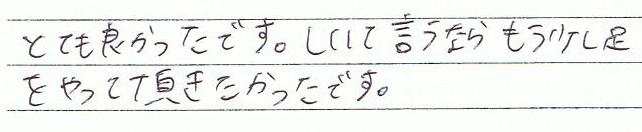 とても良かったです。しいて言うならもう少し足
をやって頂きたかったです。